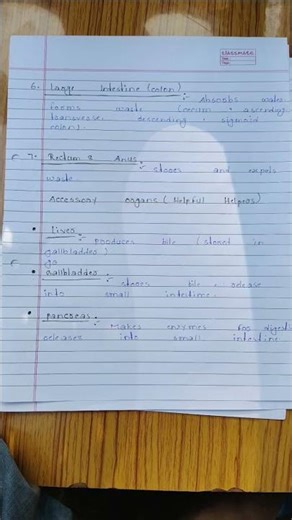 classmate
6. Large Intestine (colon) :- Absorbs water
forms waste (cecum, ascending
transverse, descending, sigmoid
colon).
7. Rectum & Anus :- stores and expels
waste.
Accessory organs (Helpful Helpers)
• Liver :- produces bile (stored in
gallbladder)
go
• Gallbladder :- stores bile, release
into small intestine.
• pancreas :- Makes enzymes for digesti
releases into small intestine